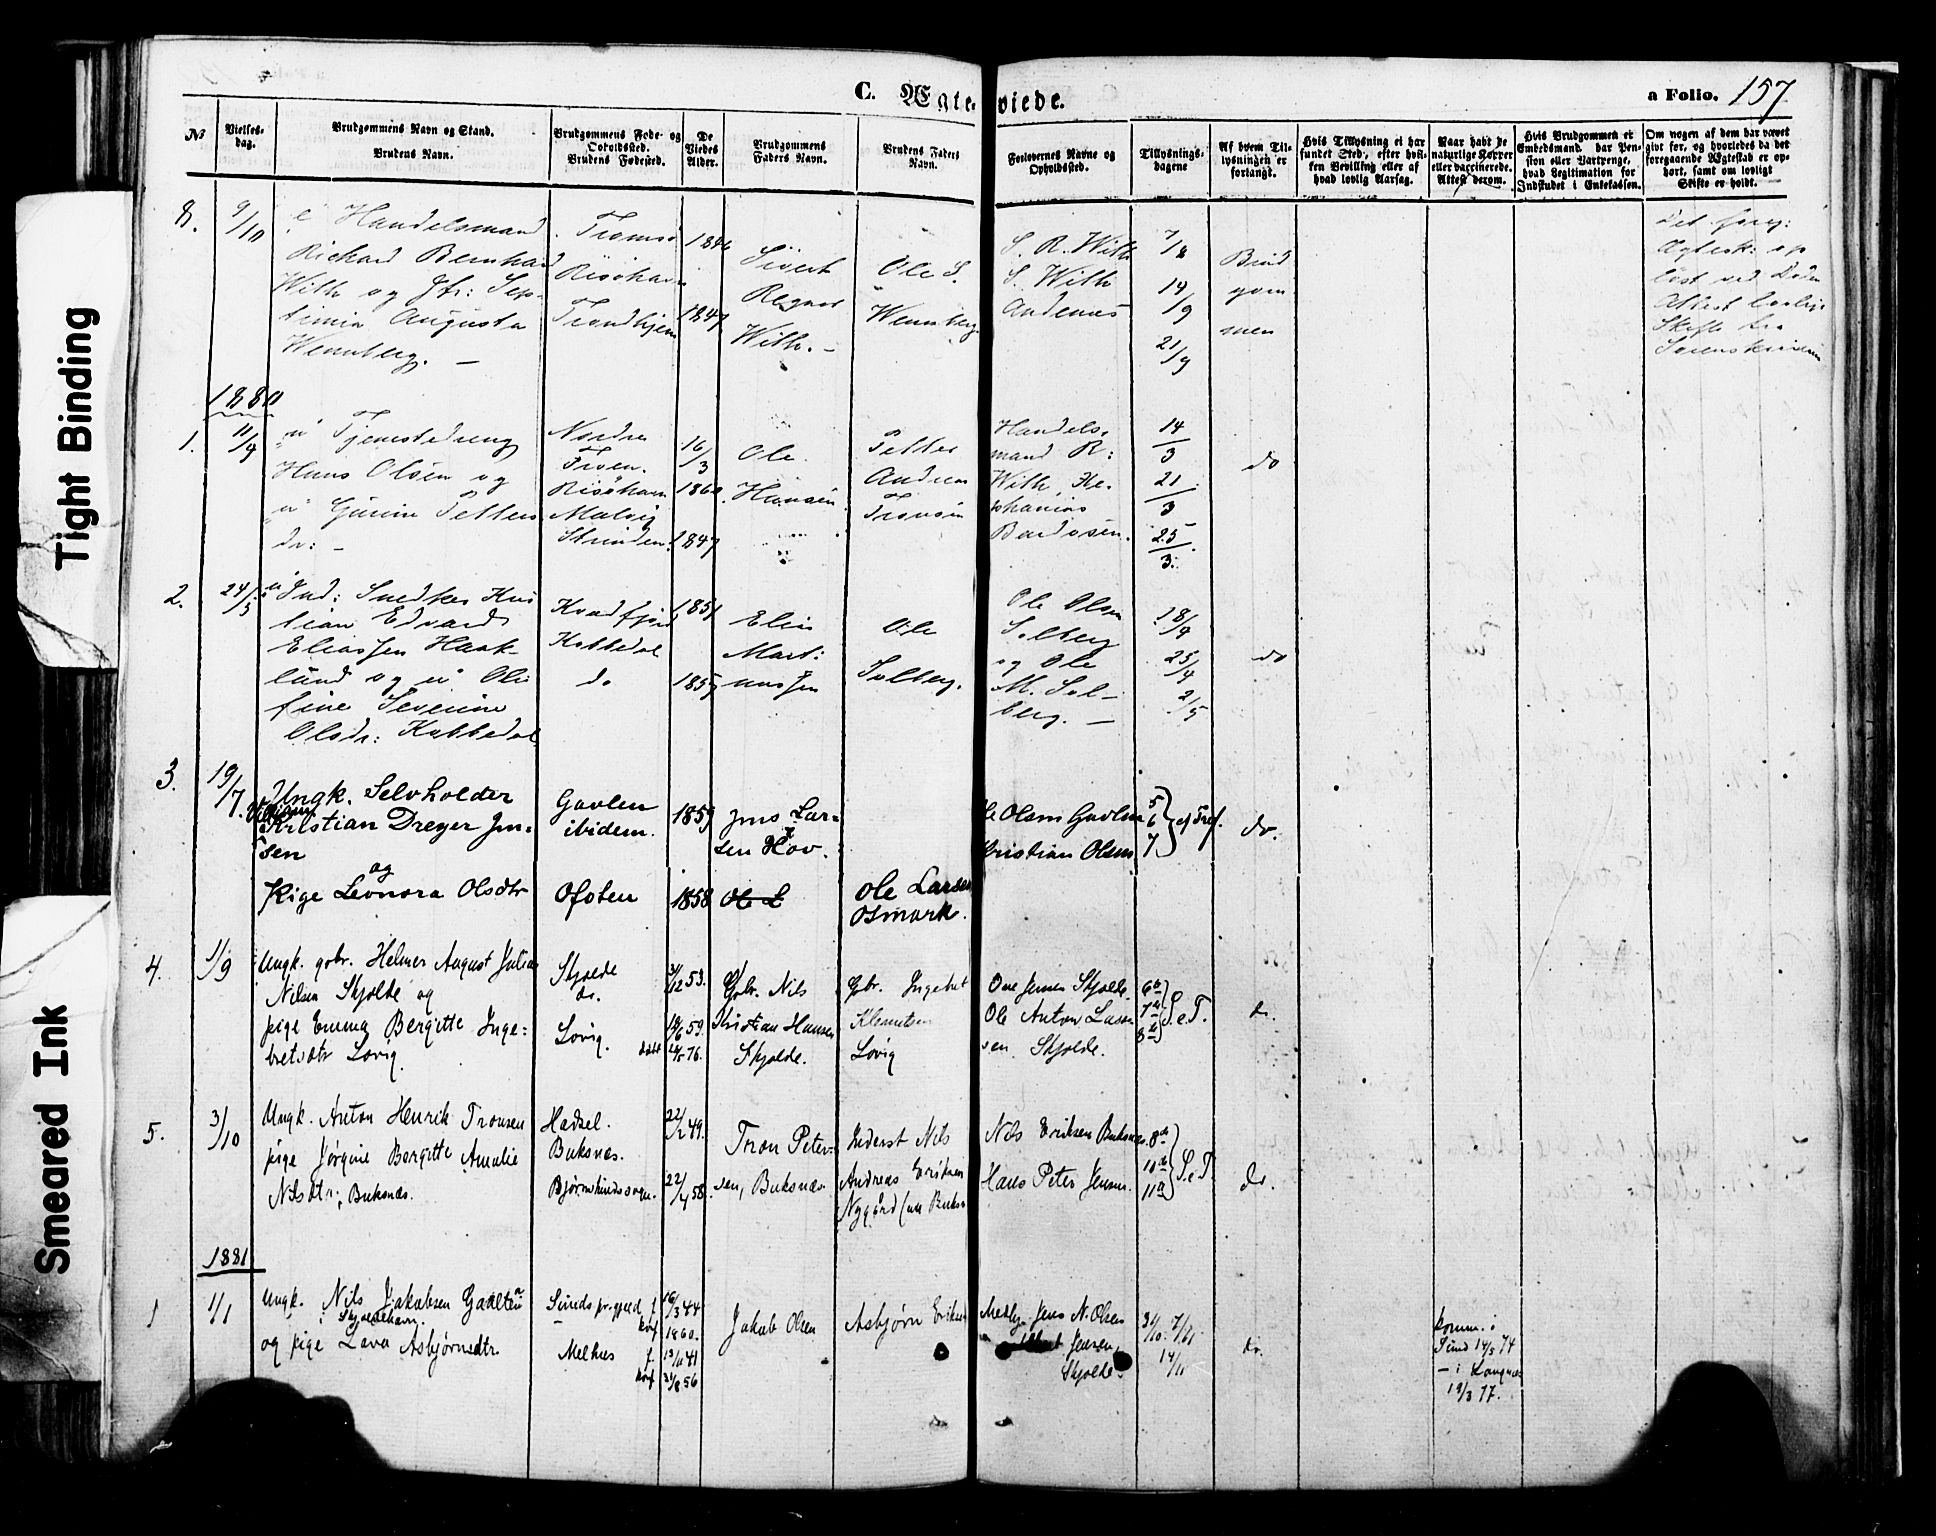 C. Ægteviede.
a Folio. 157
№
Vielses-
dag.
Brudgommens Navn og Stand.
Brudens Navn.
Brudgommens Føde- og
Opholdsted.
Brudens Fødested.
De
Viedes
Alder.
Brudgommens
Faders Navn.
Brudens Faders
Navn.
Forlovernes Navne og
Opholdssted.
Tillysnings-
dagene
Af hvem Til-
lysningen er
forlangt.
Hvis Tillysning ei har
fundet Sted, efter hvil-
ken Bevilling eller af
hvad lovlig Aarsag.
Naar havt de
naturlige Kopper
eller vaccinerede.
Attest derom.
Hvis Brudgommen er
Embedsmand, har Pen-
sion eller Vartpenge,
hvad Legitimation for
Indskudet i Enkekassen.
Om nogen af dem har været
givt før, og hvorledes da det
foregaaende Ægteskab er op-
hørt, samt om lovligt
Skifte er holdt.
8.
9/10
Handelsmand
Richard Bernhard
With og Jfr: Sep-
temia Augusta
Wennberg. —
Tromsø
Risøhavn
Trondhjem
1846
1847
Sivert
Regnor
With. —
Ole S.
Wennberg
S. R. With
S. With
Andenæs
7/8
14/9
21/9
Brud
gom
men
Det foreg:
Ægtesk: op
løst ved Døden
Attest
Skifte fra
1880
1.
11/4
Tjenestedreng
Hans Olsen og
Petters
dr: —
Nordre
Froen.
Risøhavn
Malvig
Strinden.
16/3
1860
1847
Ole
Hansen
Petter
Andreas
Tronsen
Handels-
mand R:
With, Ze-
phanias
Bardosen.
14/3
21/3
25/3.
do
2.
24/5
Ind: Snedker Kris
tian Edvard
Eliassen Haak-
lund og u Oli
fine Severine
Olsdr: Kobbedal
Kvædfjord
Kobbedal
do
1851
1857
Elias
Mart:
nussen
Ole
Solberg.
Ole Olsen
Solberg
og Ole
M. Sol-
berg. —
18/4
25/4
2/5
do
3.
19/7.
Ungk. Selvholder
Kristian Dreyer Jen=
sen
og
Pige Leonora Olsdtr
Gavlen
ibidem.
Ofoten
1859
1858
Jens Lar=
sen Hov.
Ole L
Ole Larsen
Osmark.
Ole Olsen Gavlen
Kristian Olsen
5
6
7
ef Tref.
do.
4.
1/9
Ungk. gbr. Helmer August Julius
Nilsen Skjolde og
pige Emma Bergitte Inge=
bretsdtr Lovig.
Skjolde
do.
Lovig.
døbt
31/12 53.
19/6 59.
24/5 76.
Gbr. Nils
Kristian Hansen
Skjolde.
Gbr. Ingebret
Klemetsen
Lovig
One Jensen Skjolde.
Ole Anton Lasse
sen, Skjolde.
6te
7de
8de
S.e.T.
do.
5.
3/10
Ungk. Anton Henrik Tronsen
pige Jørgine Bergitte Amalie
Nilsdtr, Buksnæs.
Hadsel.
Buksnæs.
Bjørnskinds sogn.
22/2 49.
22/4 58.
Tron Peter-
sen, Buksnæs
Inderst Nils
Andreas Eriksen
Nygård (nu Buksn
Nils Eriksen Buksnæs.
Hans Peter Jensen.
8de
10de
11te
S.e.T.
do.
1881
1
1/1
Ungk. Nils Jakobsen Gaalten
i Skjoldehavn.
og pige Lava Asbjørnsdtr.
Sunds pr.gjeld f.
konf
Melnes f.
konf
16/3 44
1860.
13/11 41
31/8 56
Jakob Olsen
Asbjørn Eriksen
Medhj. Jens N. Olsen
Jensen,
Skjolde.
31/10. 7/11
14/11
do.
konm. i
Sund 14/5 74
— i Langnæs
19/3 77.
Tight Binding
Smeared Ink